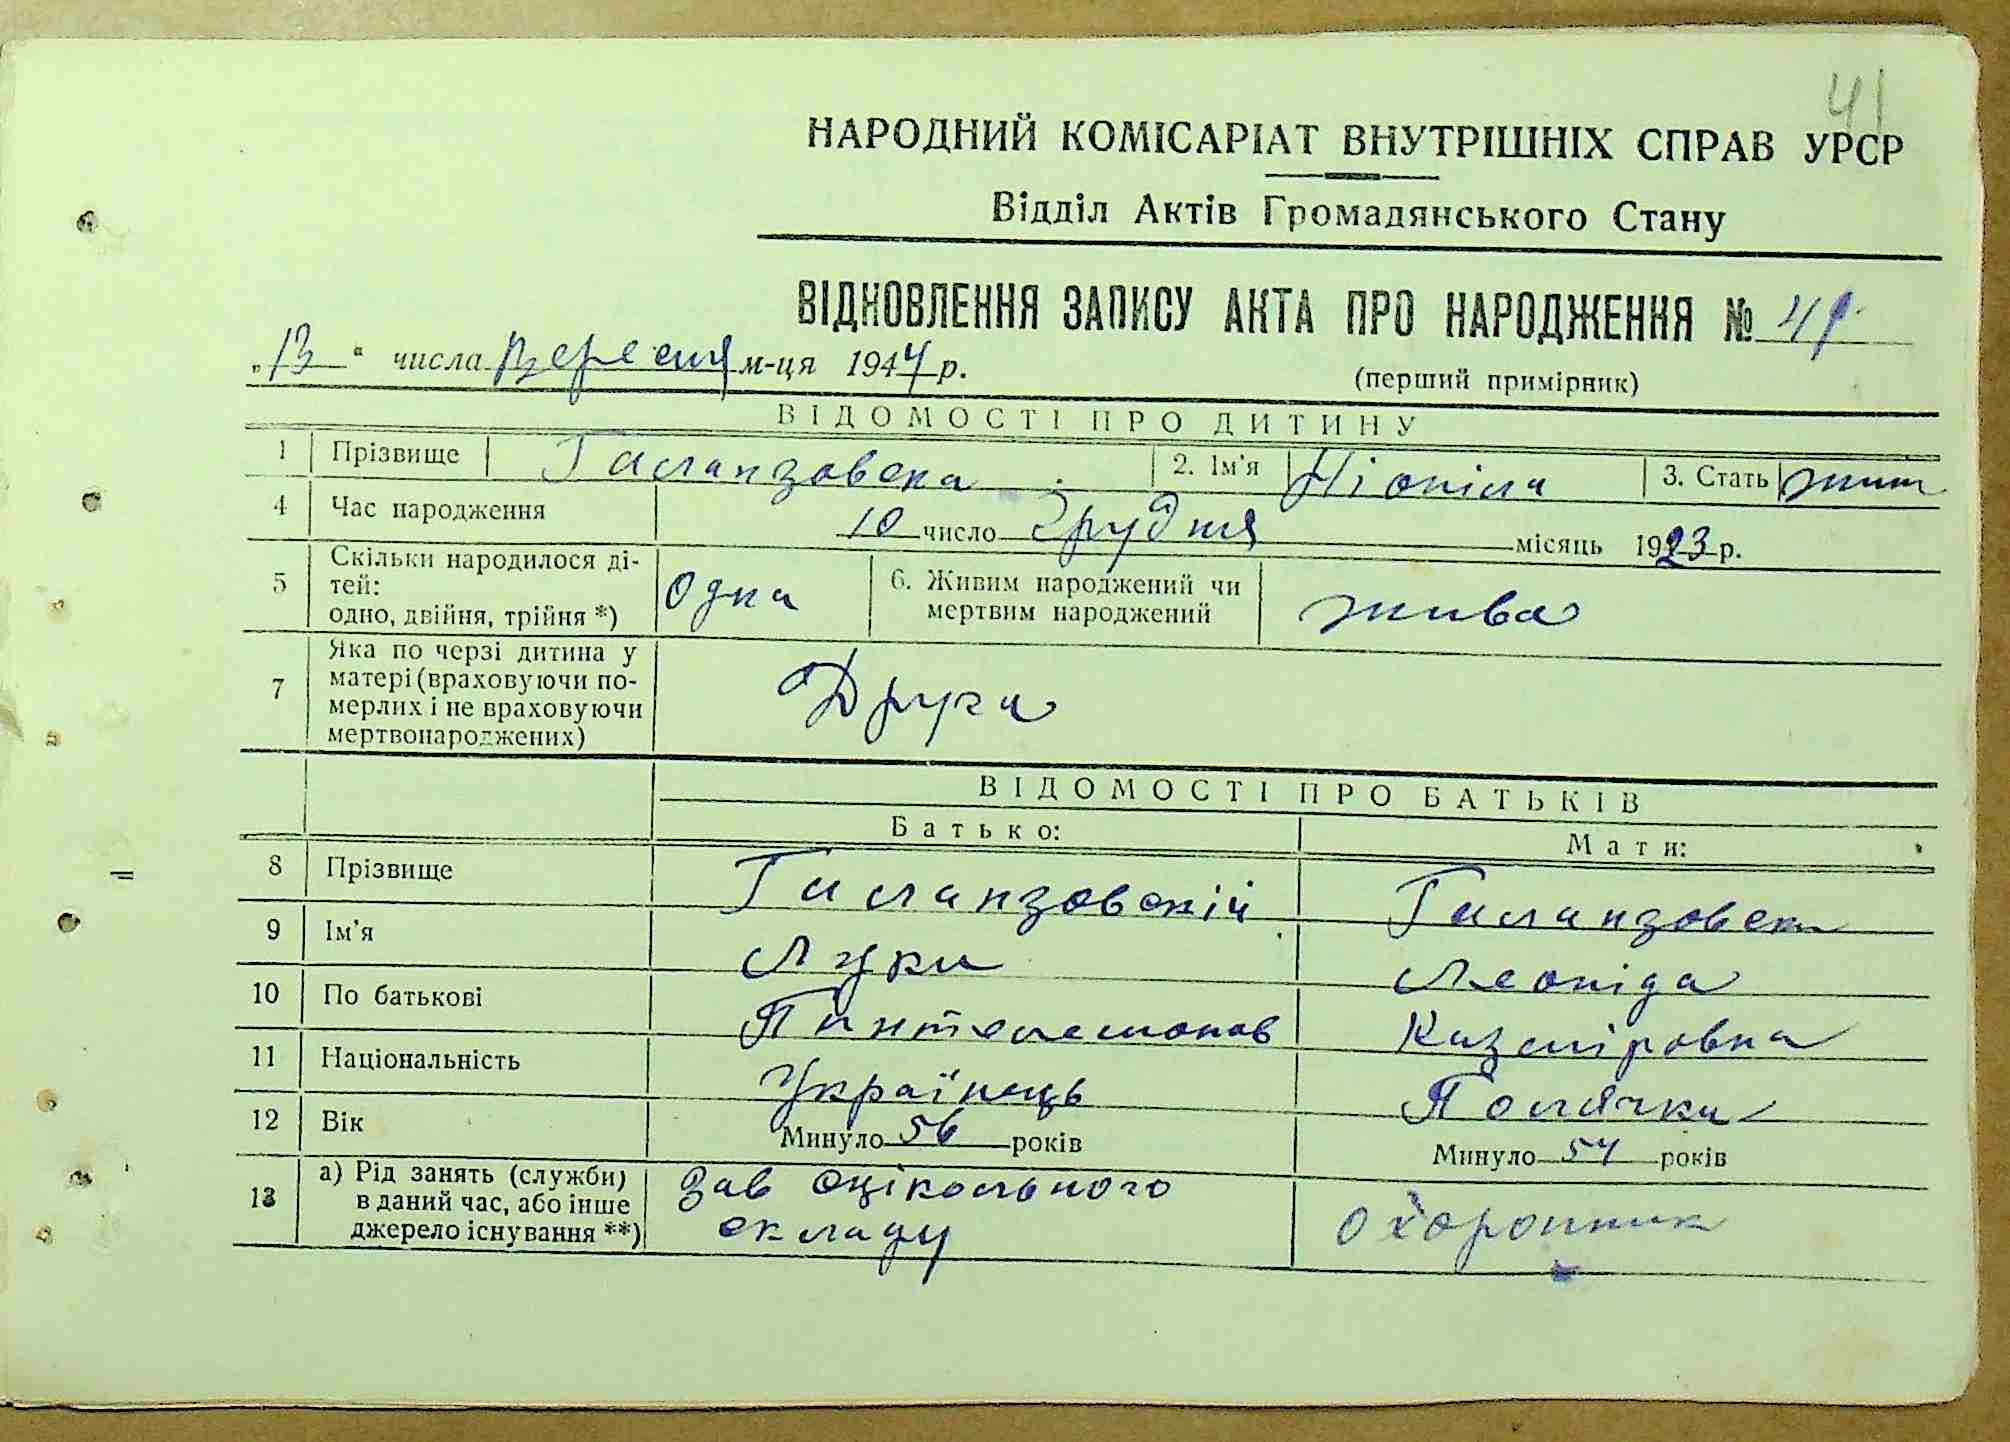 41
НАРОДНИЙ КОМІСАРІАТ ВНУТРІШНІХ СПРАВ УРСР
Відділ Актів Громадянського Стану
ВІДНОВЛЕННЯ ЗАПИСУ АКТА ПРО НАРОДЖЕННЯ №
„13“ числа вересня м-ця 1944 р.
(перший примірник)
ВІДОМОСТІ ПРО ДИТИНУ
1 Прізвище 2. Ім'я 3. Стать жін
4 Час народження 10 число Грудня місяць 1923 р.
5 Скільки народилося ді-
тей:
одно, двійня, трійня *) Одна 6. Живим народжений чи
мертвим народжений жива
7 Яка по черзі дитина у
матері (враховуючи по-
мерлих і не враховуючи
мертвонароджених) Друга
ВІДОМОСТІ ПРО БАТЬКІВ
Батько: Мати:
8 Прізвище
9 Ім'я Лука Леоніда
10 По батькові Казміровна
11 Національність Українець Полячка
12 Вік Минуло 56 років Минуло 54 років
13 а) Рід занять (служби)
в даний час, або інше
джерело існування **) Зав
складу охоронник